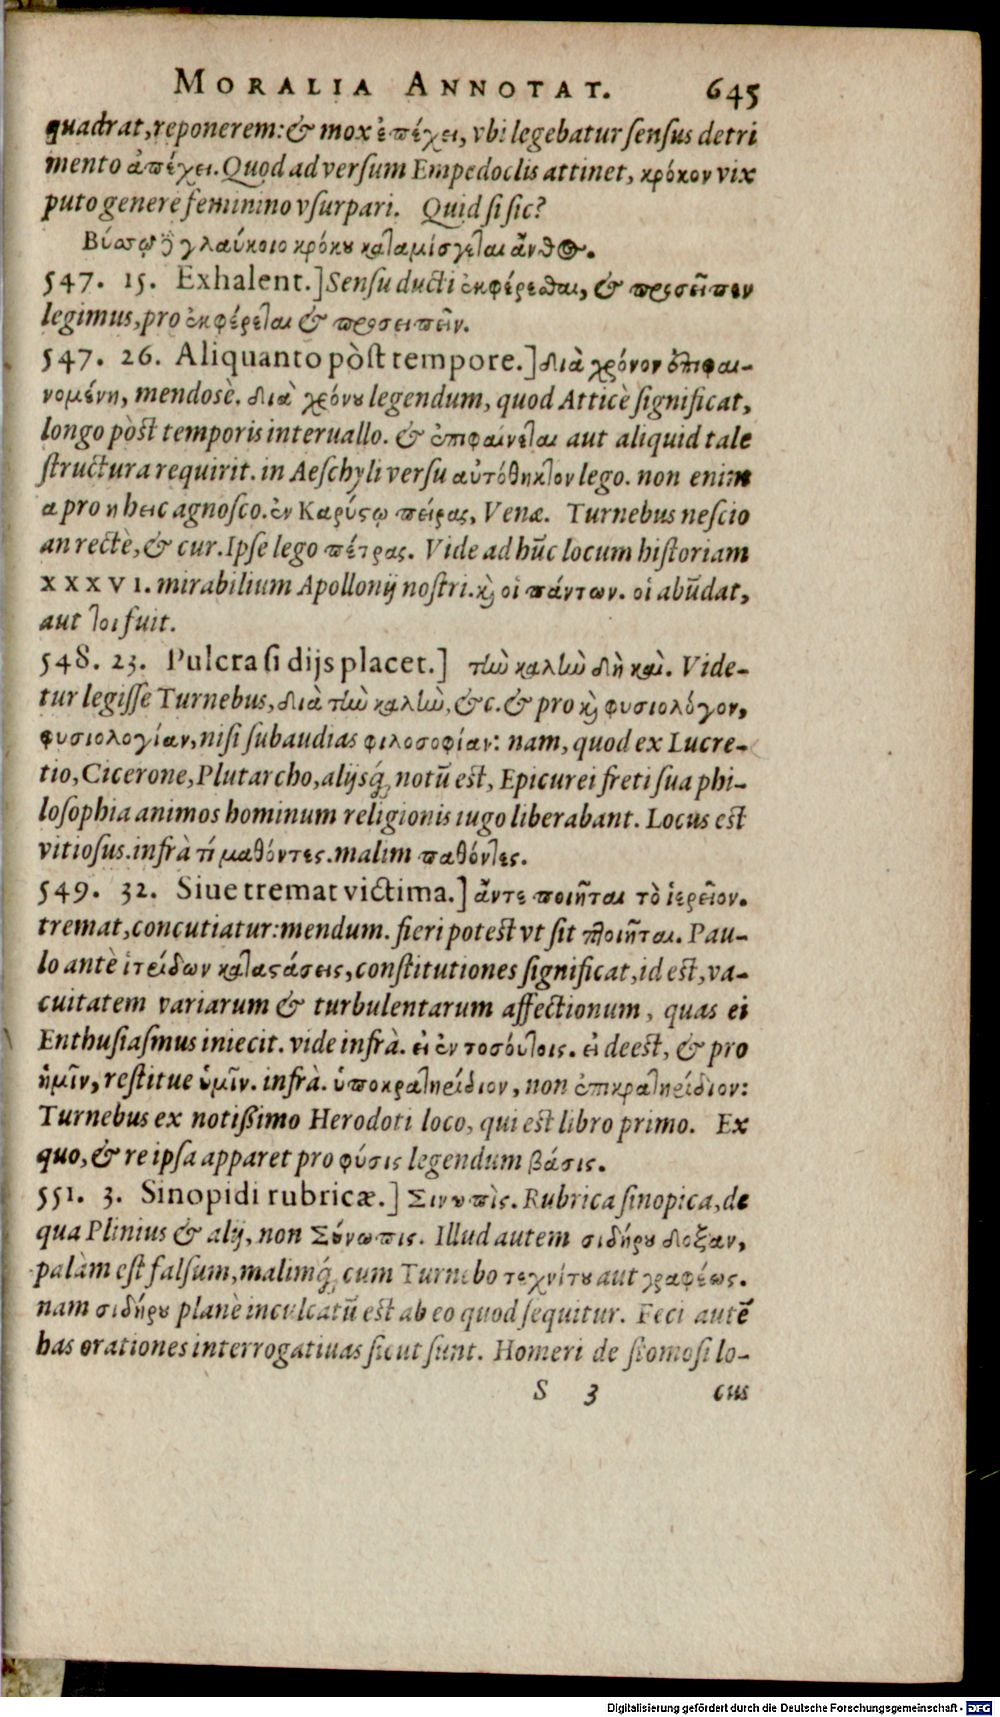 MORALIA ANNOTAT. 645
quadrat, reponerem: & mox ἐπέχει, vbi legebatur sensus detri
mento ἀπέχει. Quod ad versum Empedoclis attinet, κρόκον vix
puto genere feminino vsurpari. Quid si sic?
Βύσσῳ ἢ γλαύκοιο κρόκου καταμίσγεται ἄνθος.
547. 15. Exhalent.] Sensu ducti ἐκφέρεσθαι, & προσεῖπεν
legimus, pro ἐκφέρεται & προσειπεῖν.
547. 26. Aliquanto pòst tempore.] διὰ χρόνον ἐπιφαι-
νομένη, mendosè. διὰ χρόνου legendum, quod Atticè significat,
longo pòst temporis interuallo. & ἐπιφαίνεται aut aliquid tale
structura requirit. in Aeschyli versu αὐτόθηκτον lego. non enim
α pro η hεις agnosco. ἐν Καρύστῳ πείρας, Venæ. Turnebus nescio
an rectè, & cur. Ipse lego πέτρας. Vide ad hūc locum historiam
XXXVI. mirabilium Apollonij nostri. καὶ οἱ πάντων. οἱ abūdat,
aut τοι fuit.
548. 23. Pulcra si dijs placet.] τὴν καλὴν δὴ καὶ. Vide-
tur legisse Turnebus, διὰ τὴν καλὴν, &c. & pro καὶ φυσιολόγον,
φυσιολογίαν, nisi subaudias φιλοσοφίαν: nam, quod ex Lucre-
tio, Cicerone, Plutarcho, alijsq́; notū est, Epicurei freti sua phi-
losophia animos hominum religionis iugo liberabant. Locus est
vitiosus. infrà τί μαθόντες. malim παθόντες.
549. 32. Siue tremat victima.] ἄντε ποιῆται τὸ ἱερεῖον.
tremat, concutiatur: mendum. fieri potest vt sit πτοιῆται. Pau-
lo antè ἰτείδων καταστάσεις, constitutiones significat, id est, va-
cuitatem variarum & turbulentarum affectionum, quas ei
Enthusiasmus iniecit. vide infrà. εἰ ἐν τοσούτοις. εἰ deest, & pro
ἡμῖν, restitue ὑμῖν. infrà. ὑποκρατηρίδιον, non ἐπικρατηρίδιον:
Turnebus ex notißimo Herodoti loco, qui est libro primo. Ex
quo, & re ipsa apparet pro φύσις legendum βάσις.
551. 3. Sinopidi rubricæ.] Σινωπὶς. Rubrica sinopica, de
qua Plinius & alij, non Σύνωπις. Illud autem σιδήρου δοξαν,
palàm est falsum, malimq́; cum Turnebo τεχνίτου aut γραφέως.
nam σιδήρου planè inculcatū est ab eo quod sequitur. Feci autē
has orationes interrogatiuas sicut sunt. Homeri de stomosi lo-
S 3 cus
Digitalisierung gefördert durch die Deutsche Forschungsgemeinschaft - DFG